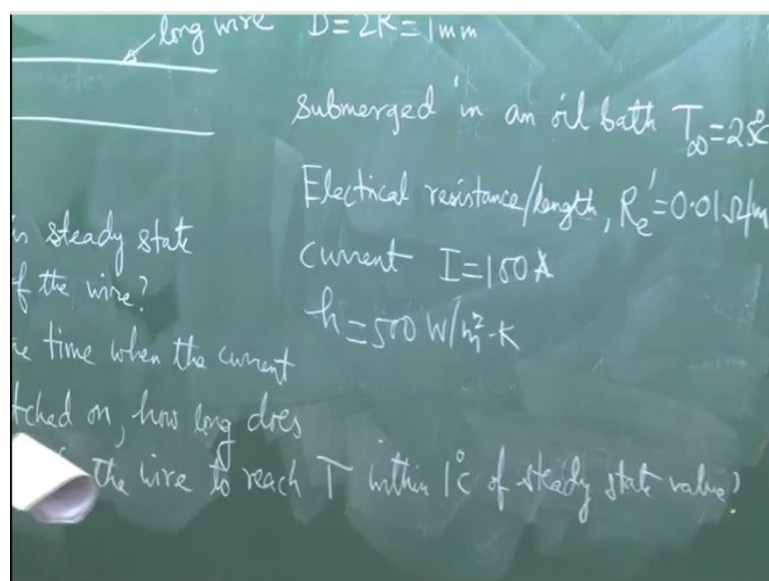 long wire D=2R=1mm
submerged in an oil bath T∞=25°C
Electrical resistance/length, Re'=0.01Ω/m
is steady state
current I=100A
of the wire?
h=500 W/m²-K
time when the current
tched on, how long does
the wire to reach T within 1°C of steady state value?